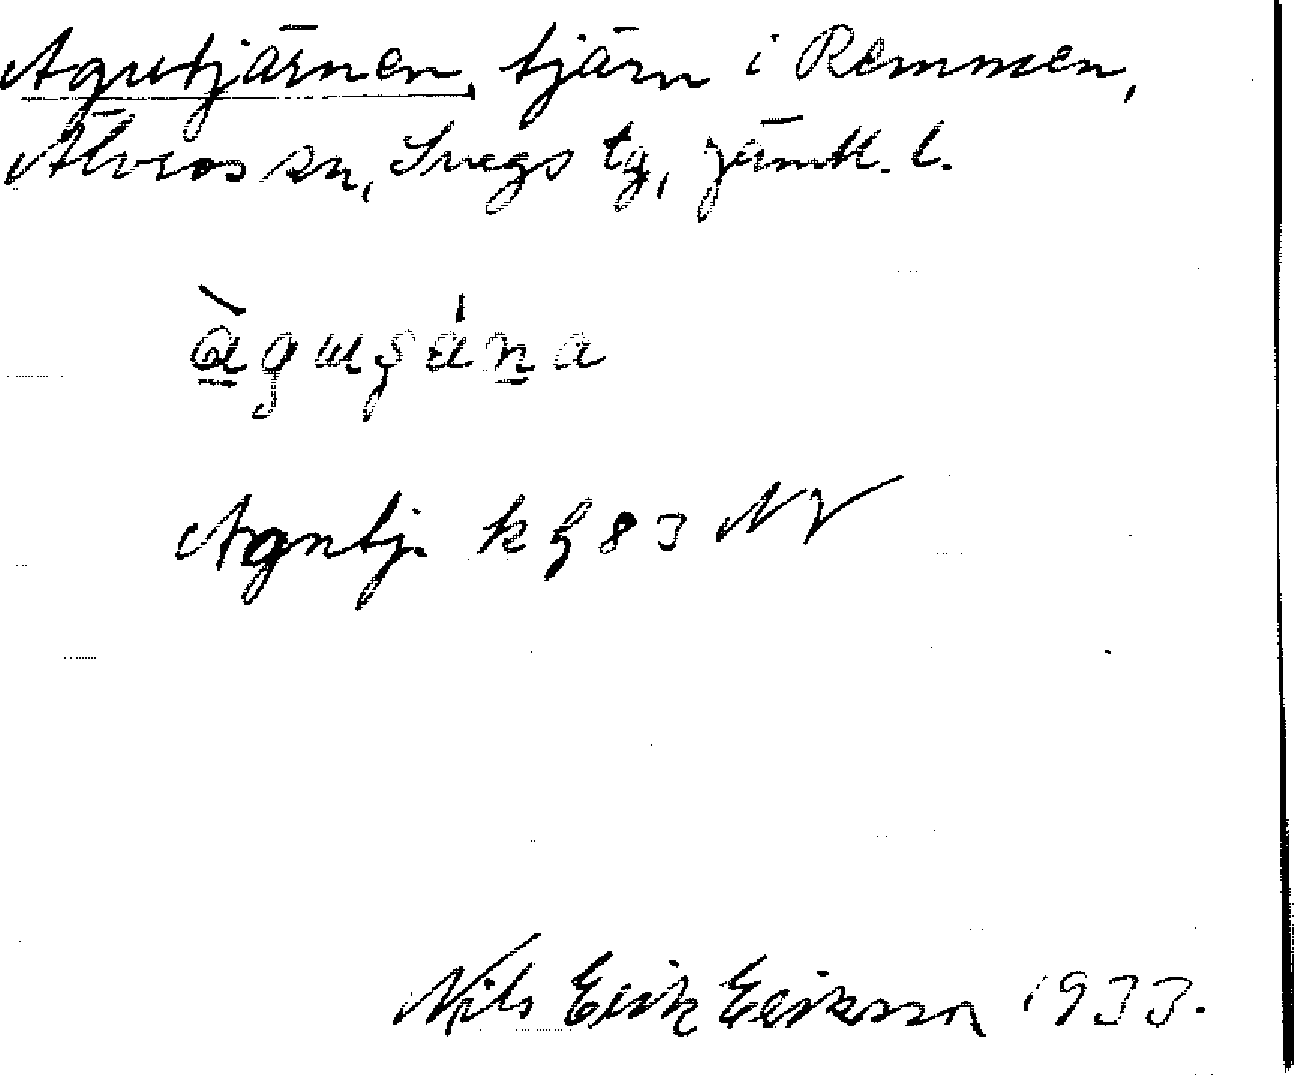 Agntjärnen, tjärn i Remmen,
Älvros sn, Svegs tg, Jämtl. l.
Agntj. k 983 NV
Nils Erik Eriksson 1933.